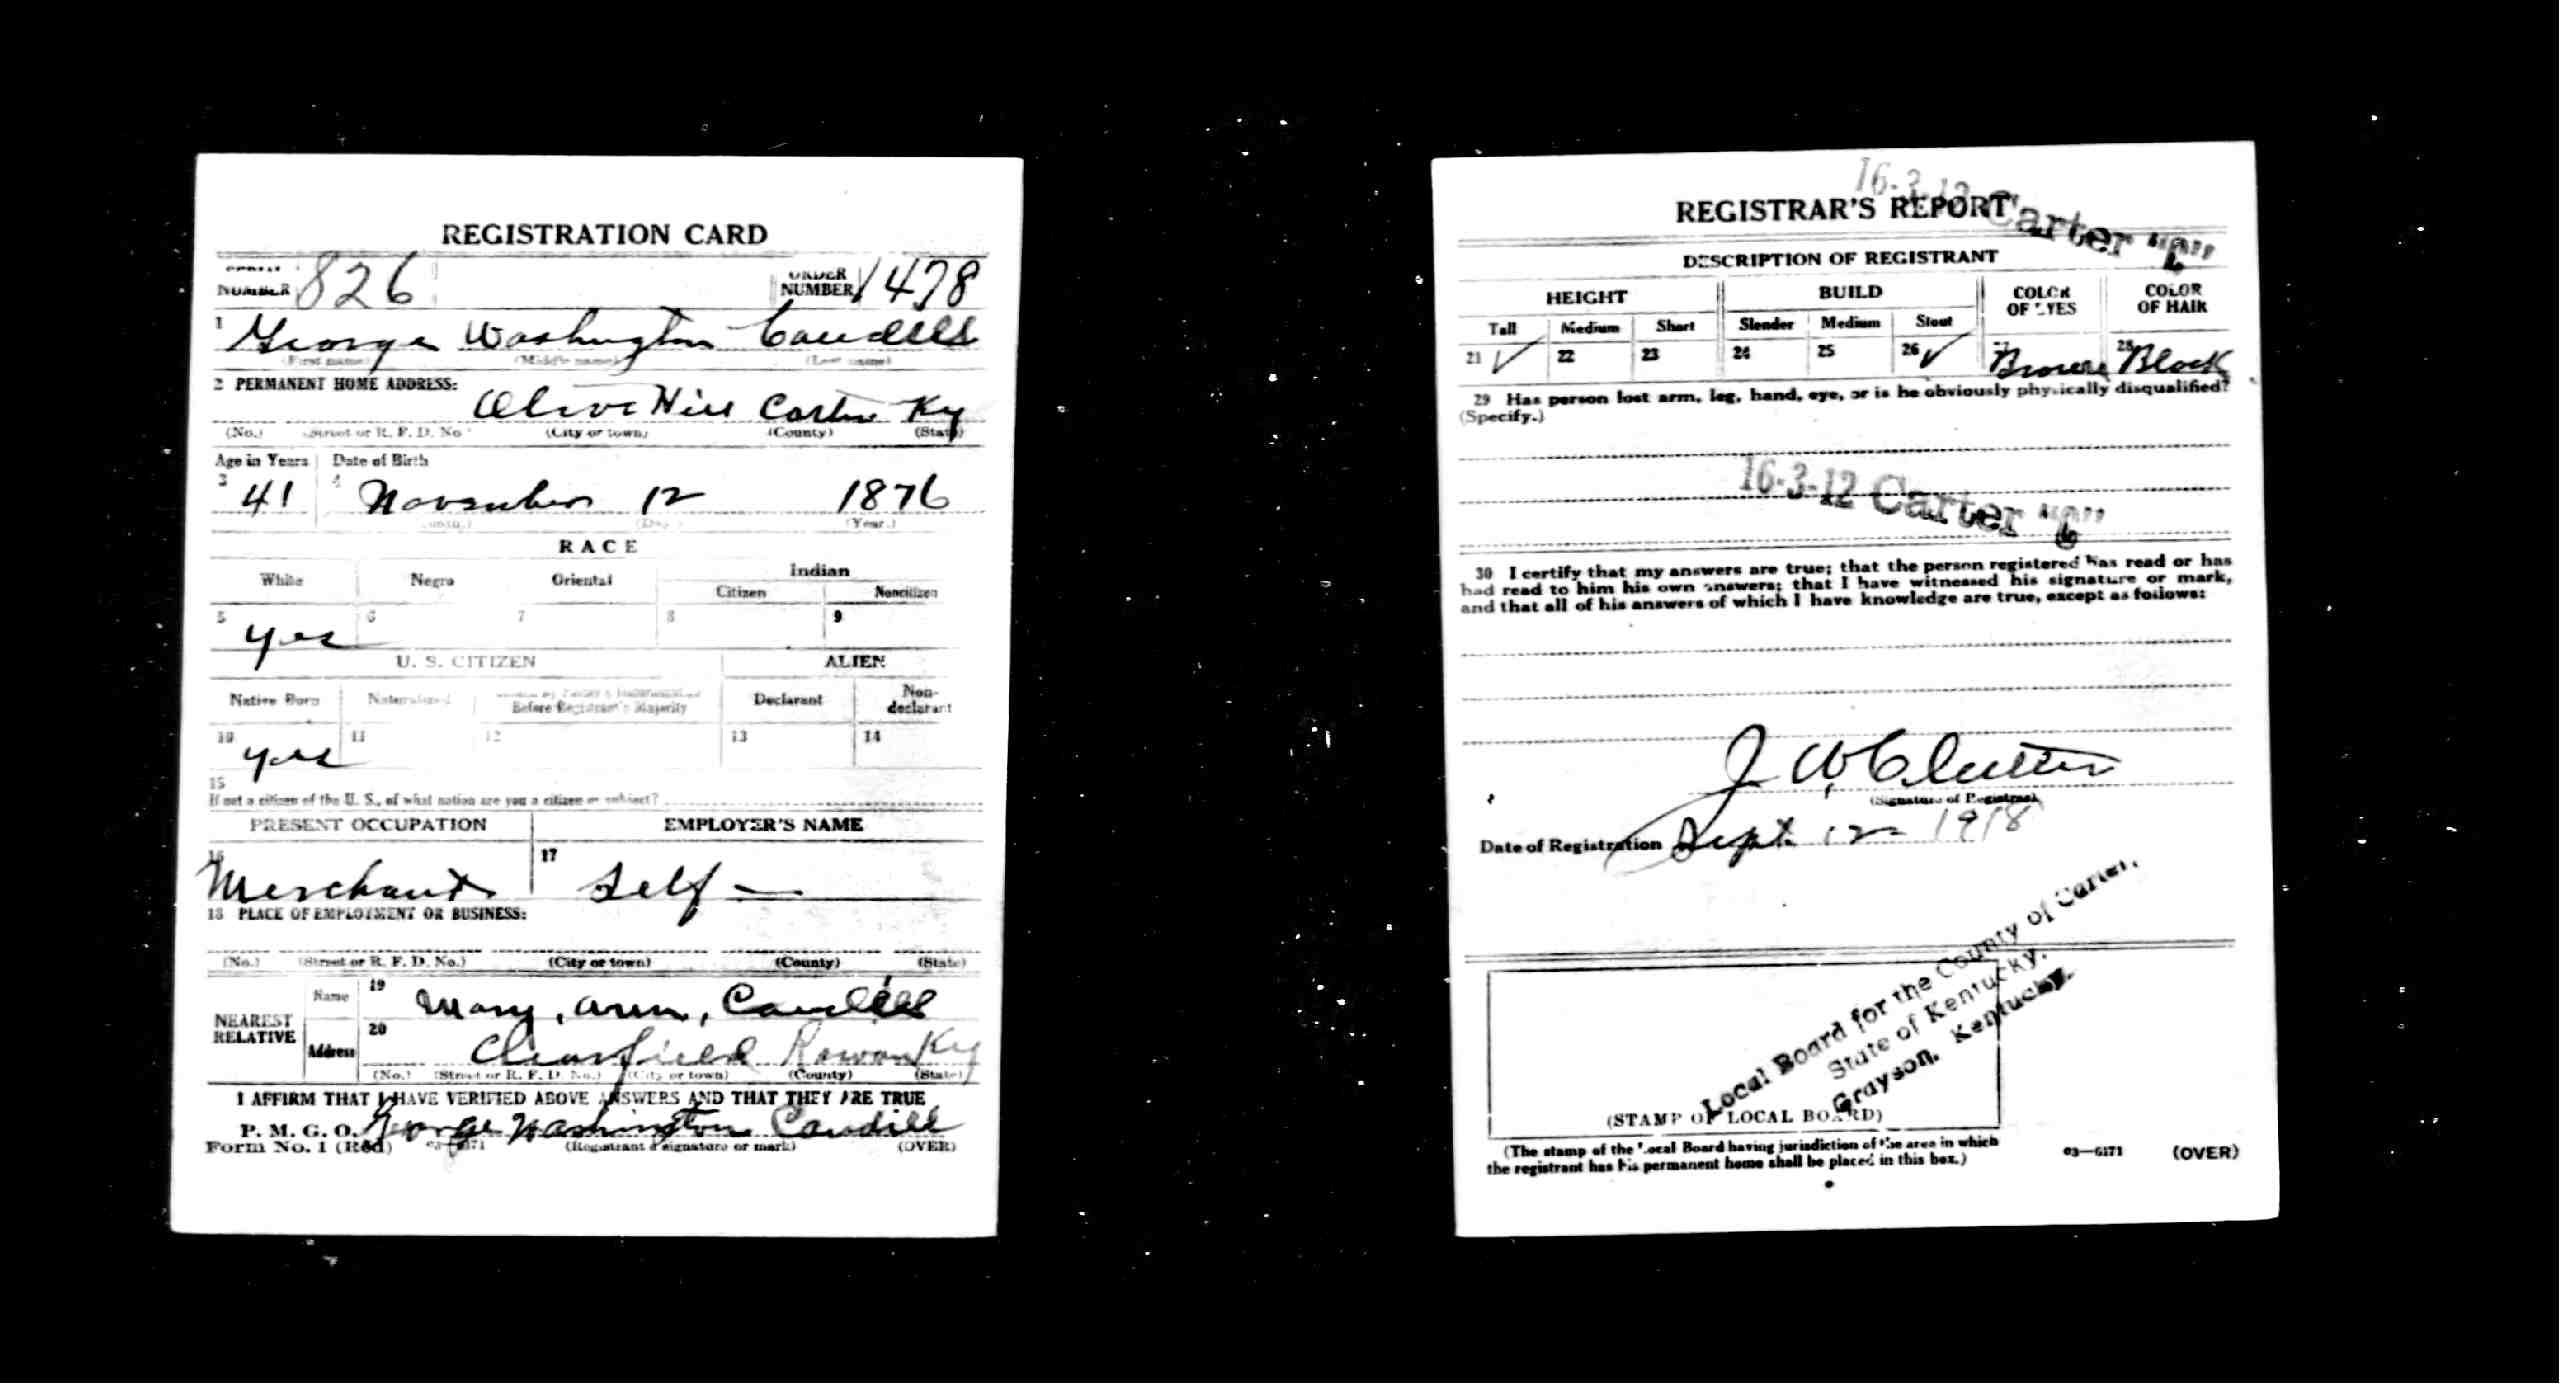 REGISTRATION CARD
NUMBER 826 ORDER NUMBER 1478
1 George Washington Caudill
(First name) (Middle name) (Last name)
2 PERMANENT HOME ADDRESS:
Olive Hill Carter Ky
(No.) (Street or R. F. D. No.) (City or town) (County) (State)
Age in Years Date of Birth
3 41 4 November 12 1876
(Month.) (Day.) (Year.)
RACE
White Negro Oriental Indian
Citizen Noncitizen
5 6 7 8 9
yes
U. S. CITIZEN ALIEN
Native Born Naturalized Before Registrant's Majority Declarant Non-declarant
10 11 12 13 14
yes
15
If not a citizen of the U. S., of what nation are you a citizen or subject?
PRESENT OCCUPATION EMPLOYER'S NAME
16 Merchant 17 Self —
18 PLACE OF EMPLOYMENT OR BUSINESS:
(No.) (Street or R. F. D. No.) (City or town) (County) (State)
NEAREST RELATIVE Name 19 Mary, Ann, Caudill
Address 20 Clearfield Rowan Ky
(No.) (Street or R. F. D. No.) (City or town) (County) (State)
I AFFIRM THAT I HAVE VERIFIED ABOVE ANSWERS AND THAT THEY ARE TRUE
P. M. G. O. George Washington Caudill
Form No. 1 (Red) 03—6171 (Registrant's signature or mark) (OVER)
16-3-12 Carter "C"
REGISTRAR'S REPORT
DESCRIPTION OF REGISTRANT
HEIGHT BUILD COLOR OF EYES COLOR OF HAIR
Tall Medium Short Slender Medium Stout
21 ✓ 22 23 24 25 26 ✓ 27 Brown 28 Black
29 Has person lost arm, leg, hand, eye, or is he obviously physically disqualified?
(Specify.)
16-3-12 Carter "C"
30 I certify that my answers are true; that the person registered has read or has
had read to him his own answers; that I have witnessed his signature or mark,
and that all of his answers of which I have knowledge are true, except as follows:
J W Clutter
(Signature of Registrar)
Date of Registration Sept. 12 - 1918
Local Board for the County of Carter,
State of Kentucky.
Grayson, Kentucky.
(STAMP OF LOCAL BOARD)
(The stamp of the Local Board having jurisdiction of the area in which
the registrant has his permanent home shall be placed in this box.)
03—6171 (OVER)